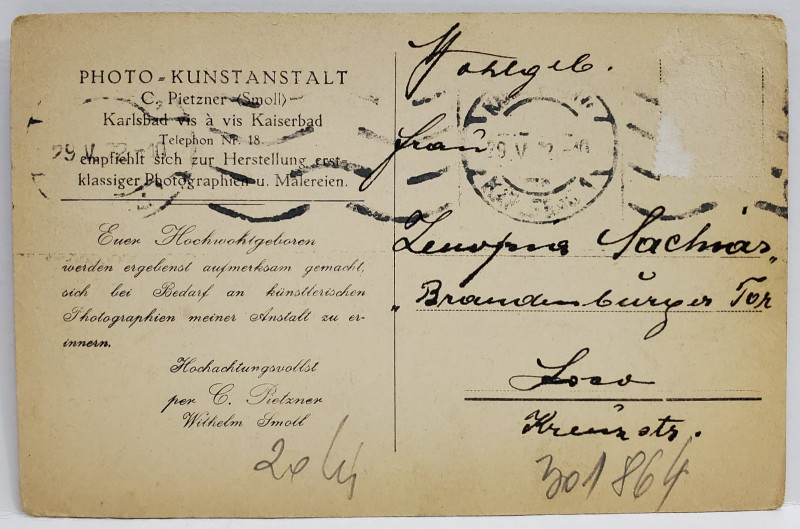 PHOTO-KUNSTANSTALT
C. Pietzner (Smoll)
Karlsbad vis à vis Kaiserbad
Telephon Nr. 18.
empfiehlt sich zur Herstellung erst-
klassiger Photographien u. Malereien.
Euer Hochwohlgeboren
werden ergebenst aufmerksam gemacht,
sich bei Bedarf an künstlerischen
Photographien meiner Anstalt zu er-
innern.
Hochachtungsvollst
per C. Pietzner
Wilhelm Smoll
Wohlgeb.
Frau
"Brandenburger Tor
Loco
Kreuzstr.
29.V.32-10
29.V.32-10
301864